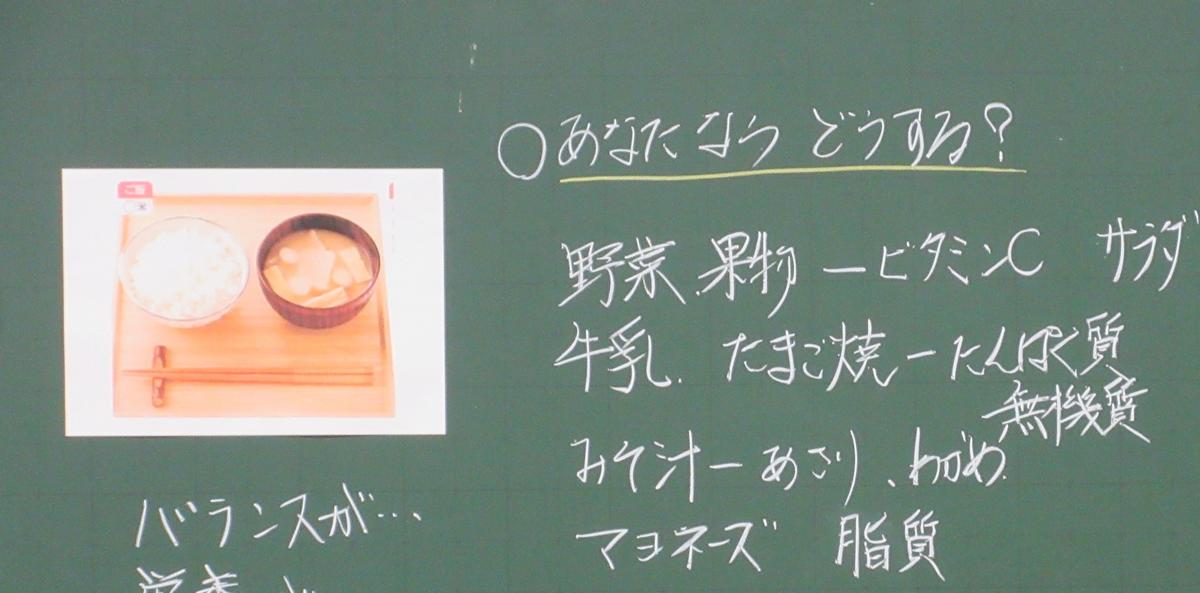 ○あなたなら どうする?
野菜、果物 ービタミンC サラダ
牛乳、たまご焼ーたんぱく質
無機質
みそ汁ーあさり、わかめ
マヨネーズ 脂質
ご飯
バランスが…